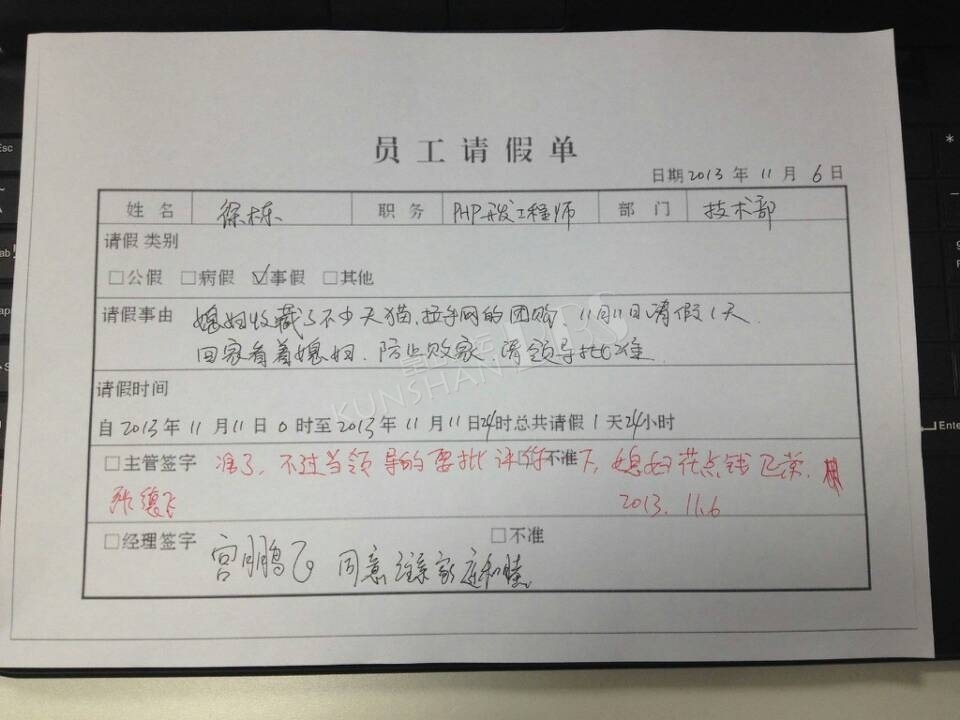 员工请假单
日期2013 年 11 月 6 日
姓名 徐栋 职务 PHP开发工程师 部门 技术部
请假类别
□公假 □病假 ☑事假 □其他
请假事由 媳妇收藏了不少天猫、拉手网的团购、11月11日请假1天
回家看着媳妇、防止败家、请领导批准
请假时间
自2013年 11 月11日 0 时至2013年 11 月 11日24时总共请假 1 天24小时
□主管签字 准了、不过当领导的要批评你 □不准 下, 媳妇花点钱
张德飞 2013. 11.6
□经理签字 宫鹏飞 □不准
同意 家庭和睦
KUNSHAN
BBS